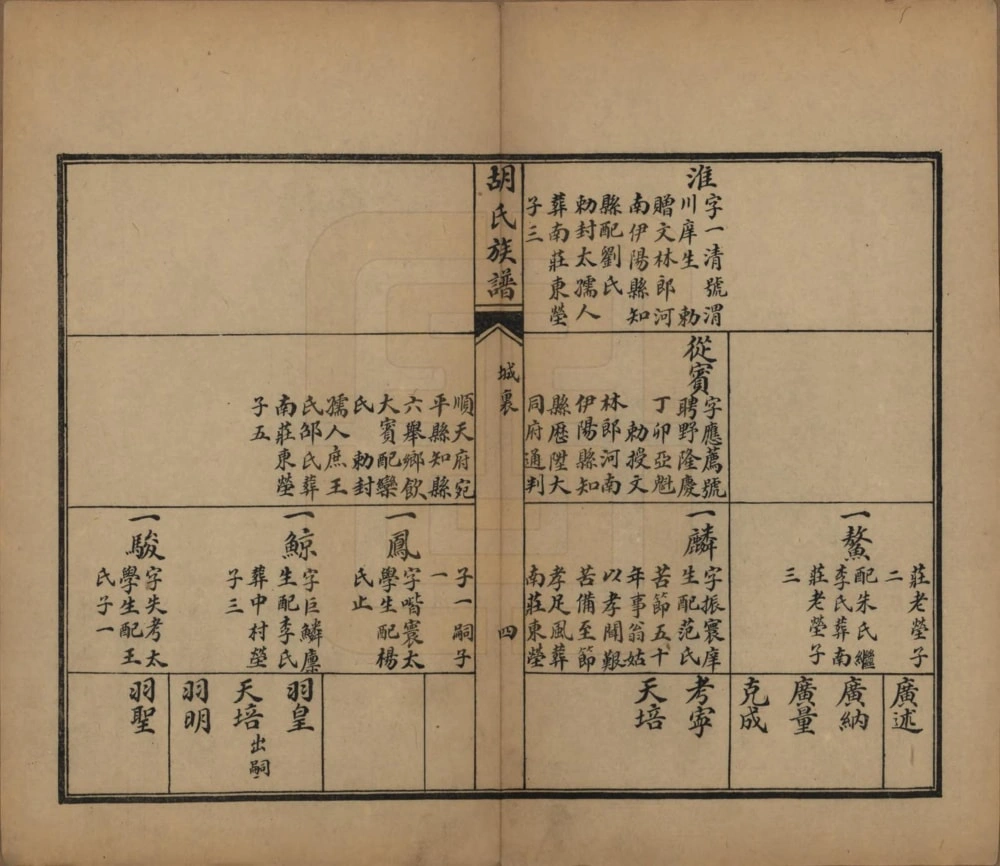 淮
字一清號渭
川庠生 勅
贈文林郎河
南伊陽縣知
縣配劉氏
勅封太孺人
葬南莊東塋
子三
從賓
字應薦號
聘野隆慶
丁卯亞魁
勅授文
林郎河南
伊陽縣知
縣歷陞大
同府通判
莊老塋子
二
一鰲
配朱氏繼
李氏葬南
莊老塋子
三
一麟
字振寰庠
生配范氏
苦節五十
年事翁姑
以孝聞艱
苦備至節
孝足風葬
南莊東塋
廣述
廣納
廣量
克成
考寧
天培
胡氏族譜
城裏
四
順天府宛
平縣知縣
六舉鄉飲
大賓配欒
氏 勅封
孺人庶王
氏邵氏葬
南莊東塋
子五
子一嗣子
一
一鳳
字喈寰太
學生配楊
氏止
一鯨
字巨鱗廩
生配李氏
葬中村塋
子三
一駿
字失考太
學生配王
氏子一
羽皇
天培出嗣
羽明
羽聖